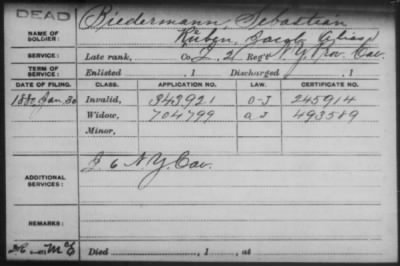 DEAD
Biedermann, Sebastian
NAME OF SOLDIER:
Jacob (Alias)
SERVICE: Late rank, Co. L, 2 Reg't N.Y. Prov. Cav.
TERM OF SERVICE: Enlisted , 1 Discharged , 1
DATE OF FILING. CLASS. APPLICATION NO. LAW. CERTIFICATE NO.
1880 Jan. 30 Invalid, 343921 245914
Widow, 704799 493589
Minor,
ADDITIONAL SERVICES: 6 N.Y. Cav.
REMARKS:
Died , 1 , at